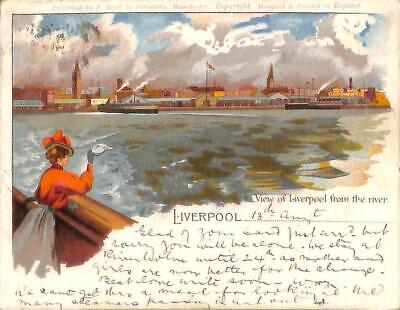 Published by J. Byrd, 15 Piccadilly, Manchester Copyright. Designed & Printed in England.
View of Liverpool from the river.
LIVERPOOL 13th Augt
Glad of your card just arr? but
sorry you will be alone. We stay at
until 24th as mother and
girls are now better for the change.
Best love write soon
We cant get this a meal for looking at the
many steamers passing in and out